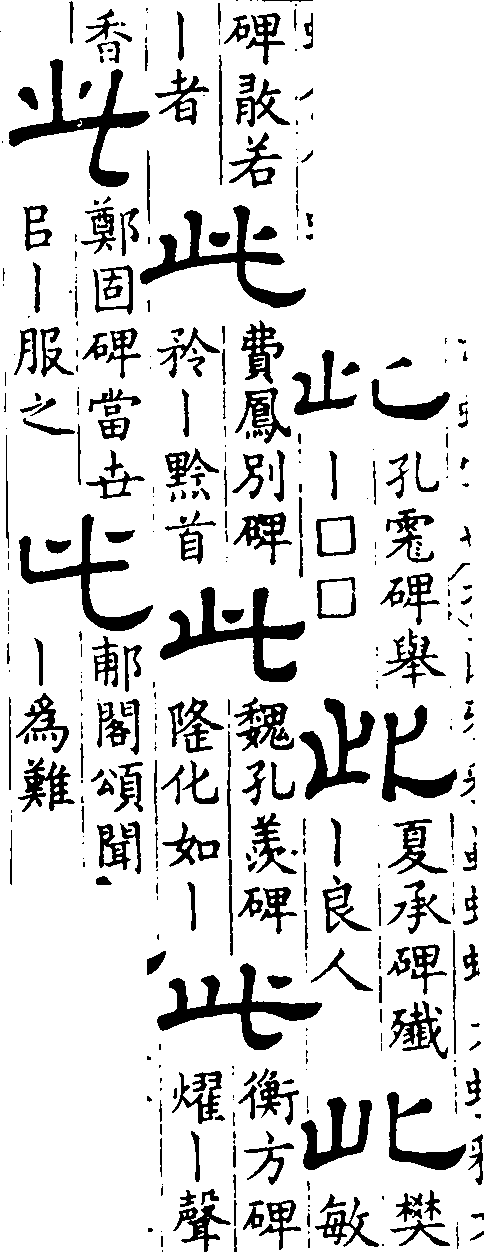 此
孔碑舉
丨□□
此
夏承碑殲
丨良人
此
樊
敏
碑敢若
丨者
此
費鳳別碑
矜丨黔首
此
魏孔羨碑
隆化如丨
此
衡方碑
燿丨聲
香
此
鄭固碑當世
㠯丨服之
此
郙閣頌聞
丨為難